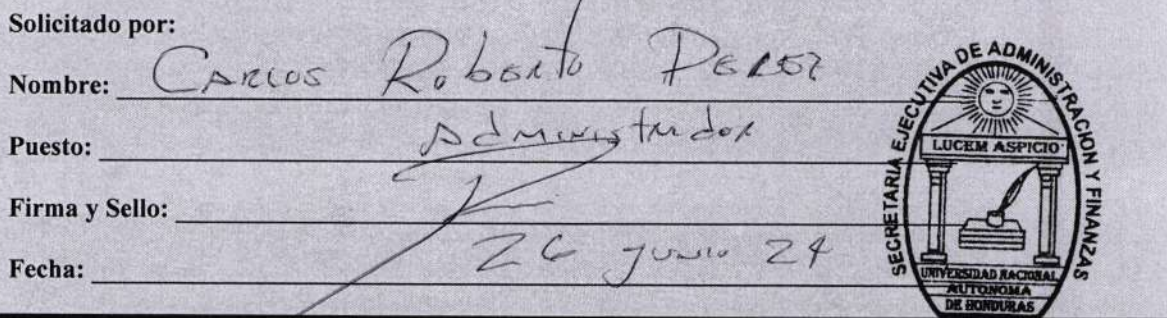 Solicitado por:
Nombre: Carlos Roberto Perez
Puesto: Administrador
Firma y Sello:
Fecha: 26 Junio 24
SECRETARIA EJECUTIVA DE ADMINISTRACION Y FINANZAS
LUCEM ASPICIO
UNIVERSIDAD NACIONAL
AUTONOMA
DE HONDURAS